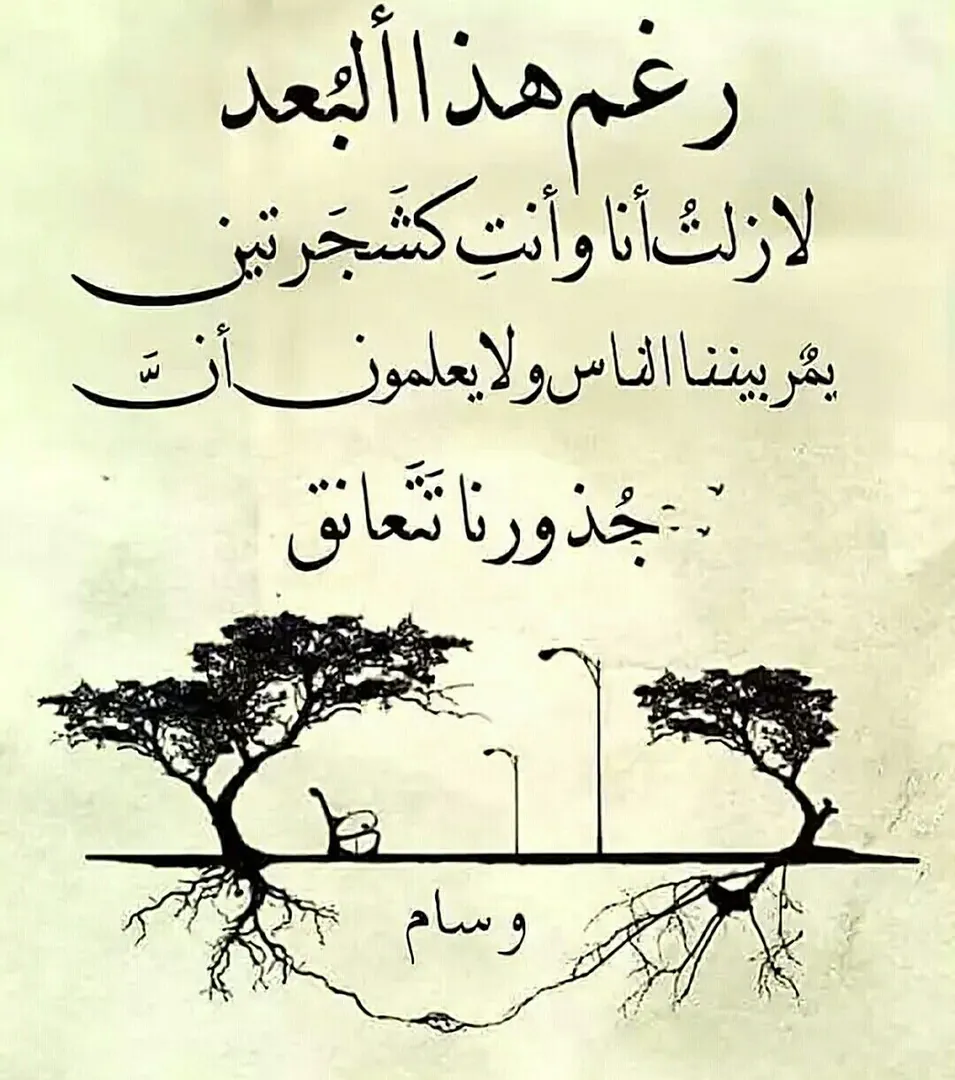 رغم هذا ألبُعد
لازلتُ أنا وأنتِ كشَجَرتين
يمُر بيننا الناس ولا يعلمون أنَّ
جُذورنا تَتَعانق
وسام